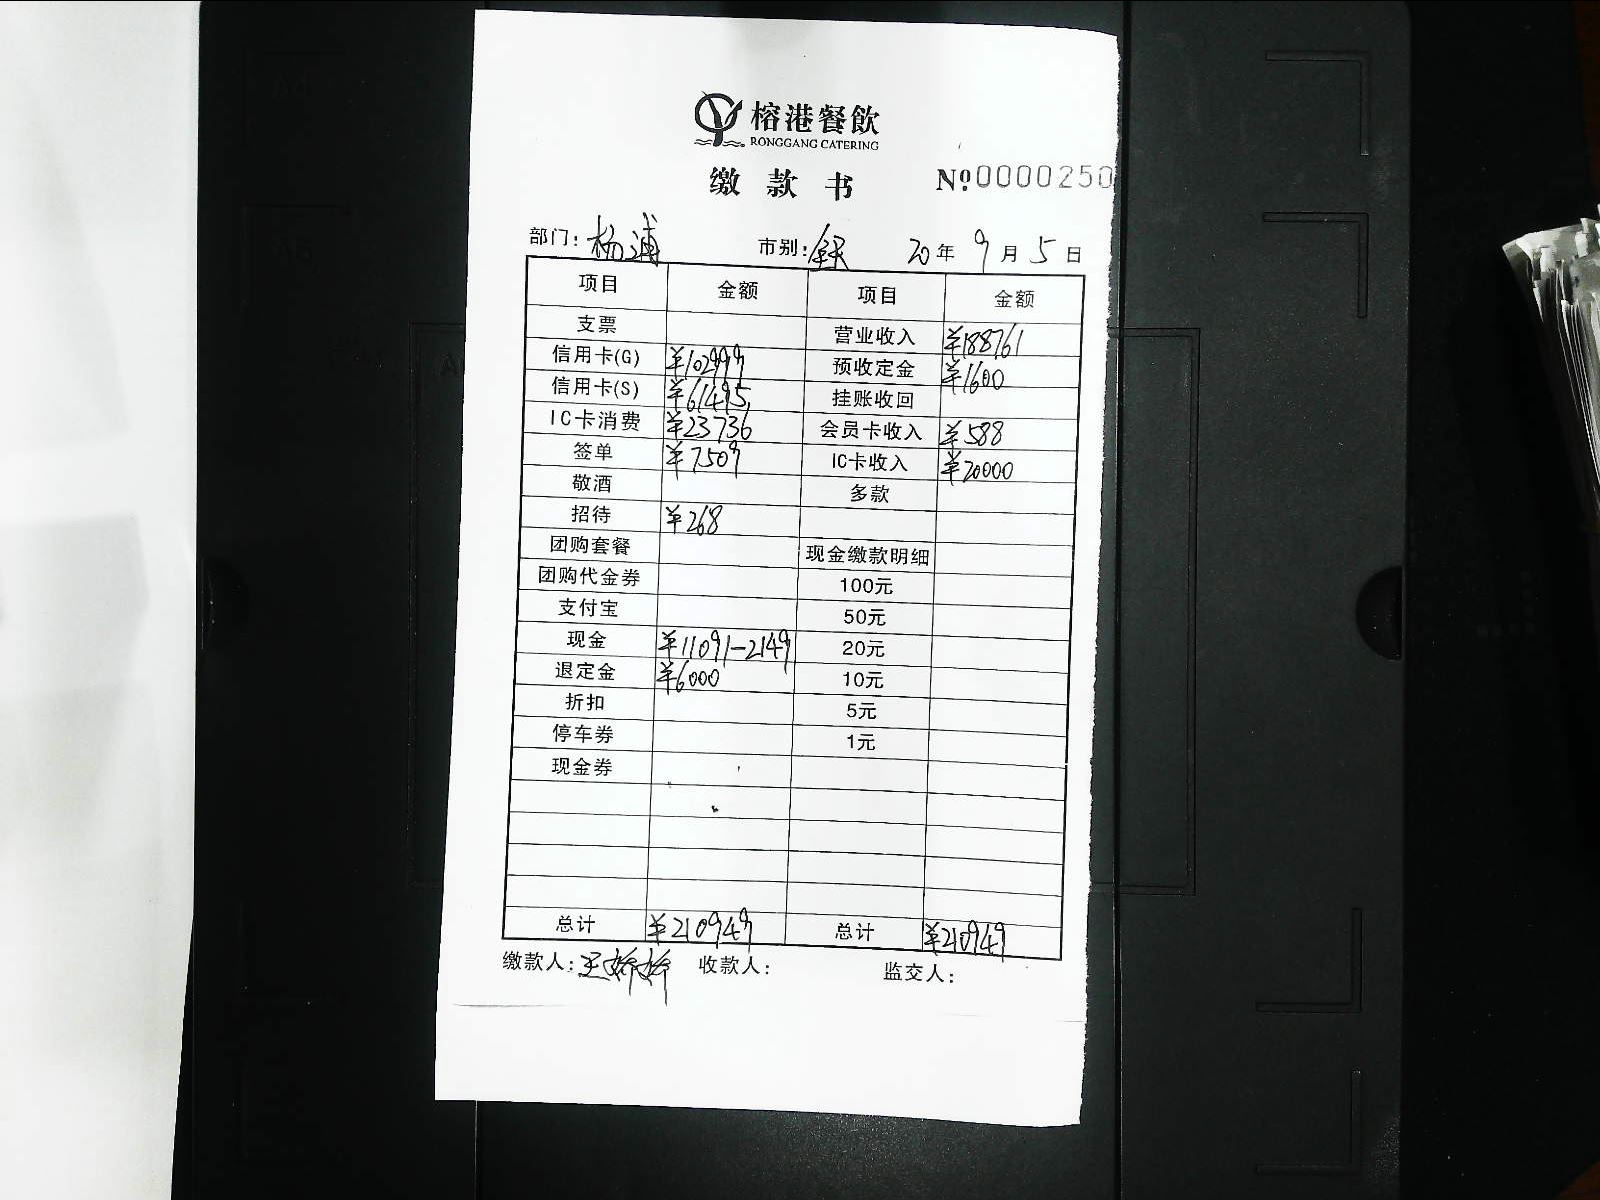 榕港餐飲
RONGGANG CATERING
缴款书 №0000250
部门: 杨浦 市别: 全天 20年9月5日
项目 金额 项目 金额
支票 营业收入 ¥188761
信用卡(G) ¥102999 预收定金 ¥1600
信用卡(S) ¥61495 挂账收回
IC卡消费 ¥23736 会员卡收入 ¥588
签单 ¥7509 IC卡收入 ¥20000
敬酒 多款
招待 ¥268
团购套餐 现金缴款明细
团购代金券 100元
支付宝 50元
现金 ¥11091-2149 20元
退定金 ¥6000 10元
折扣 5元
停车券 1元
现金券
总计 ¥210949 总计 ¥210949
缴款人: 王娇娇 收款人: 监交人: